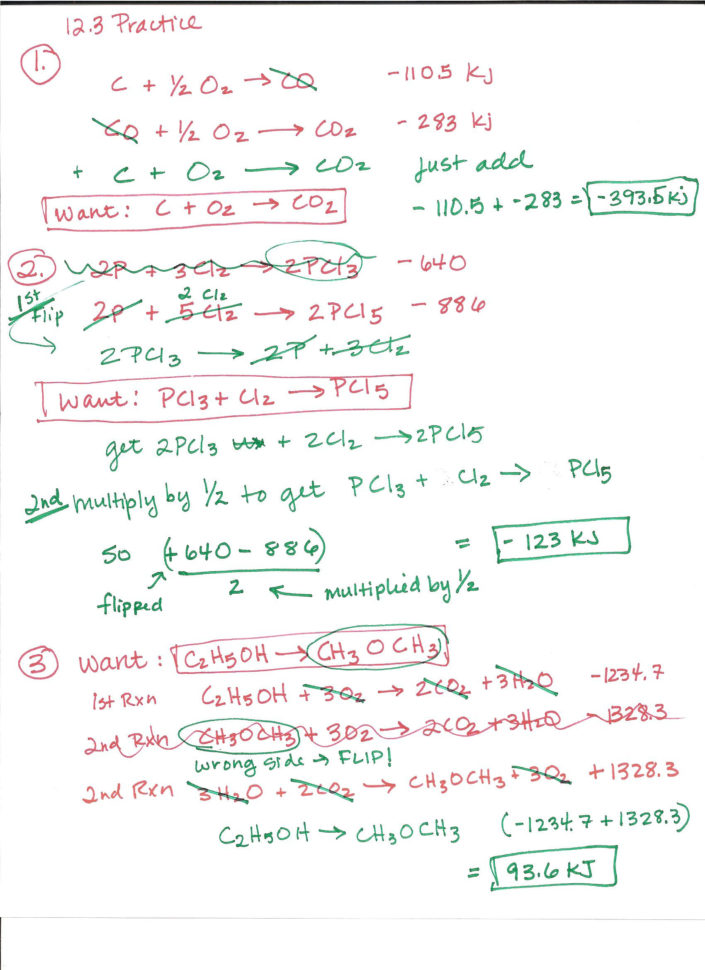 12.3 Practice
1.
C + ½ O₂ → CO -110.5 kJ
CO + ½ O₂ → CO₂ - 283 kJ
+ C + O₂ → CO₂ just add
Want: C + O₂ → CO₂ - 110.5 + -283 = -393.5 kJ
2. 2P + 3Cl₂ → 2PCl₃ - 640
2 Cl₂
1st flip 2P + 5Cl₂ → 2PCl5 - 886
2PCl₃ → 2P + 3Cl₂
Want: PCl₃ + Cl₂ → PCl5
get 2PCl₃ + 2Cl₂ → 2PCl5
2nd multiply by ½ to get PCl₃ + Cl₂ → PCl5
so (+640 - 886) = - 123 KJ
flipped 2 ← multiplied by ½
3 Want: C₂H5OH → CH₃OCH₃
1st Rxn C₂H5OH + 3O₂ → 2CO₂ + 3H₂O -1234.7
2nd Rxn CH₃OCH₃ + 3O₂ → 2CO₂ + 3H₂O - 1328.3
wrong side → FLIP!
2nd Rxn 3H₂O + 2CO₂ → CH₃OCH₃ + 3O₂ + 1328.3
C₂H5OH → CH₃OCH₃ (-1234.7 + 1328.3)
= 93.6 KJ